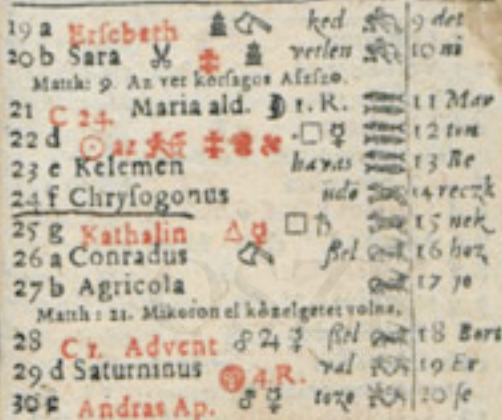 19 a Erſebeth ked 9 det
20 b Sara verlen 10 ni
Matth: 9. Az vér kórſagos Aſſzo.
21 C 24. Maria ald. ☽ 1. R. 11 Mar
22 d ☉ az □ ☿ 12 ton
23 e Kelemen havas 13 Re
24 f Chryſogonus üdö 14 reczk
25 g Kathalin △ ☿ □ ♄ 15 nek
26 a Conradus ſzel 16 hoz
27 b Agricola 17 je
Matth: 21. Mikoron el közelgetet volna.
28 C 1. Advent ☍ ♃ ☿ ſzel 18 Bori
29 d Saturninus 4. R. val 19 Er
30 e Andras Ap. ☍ ☿ toze 20 ſe